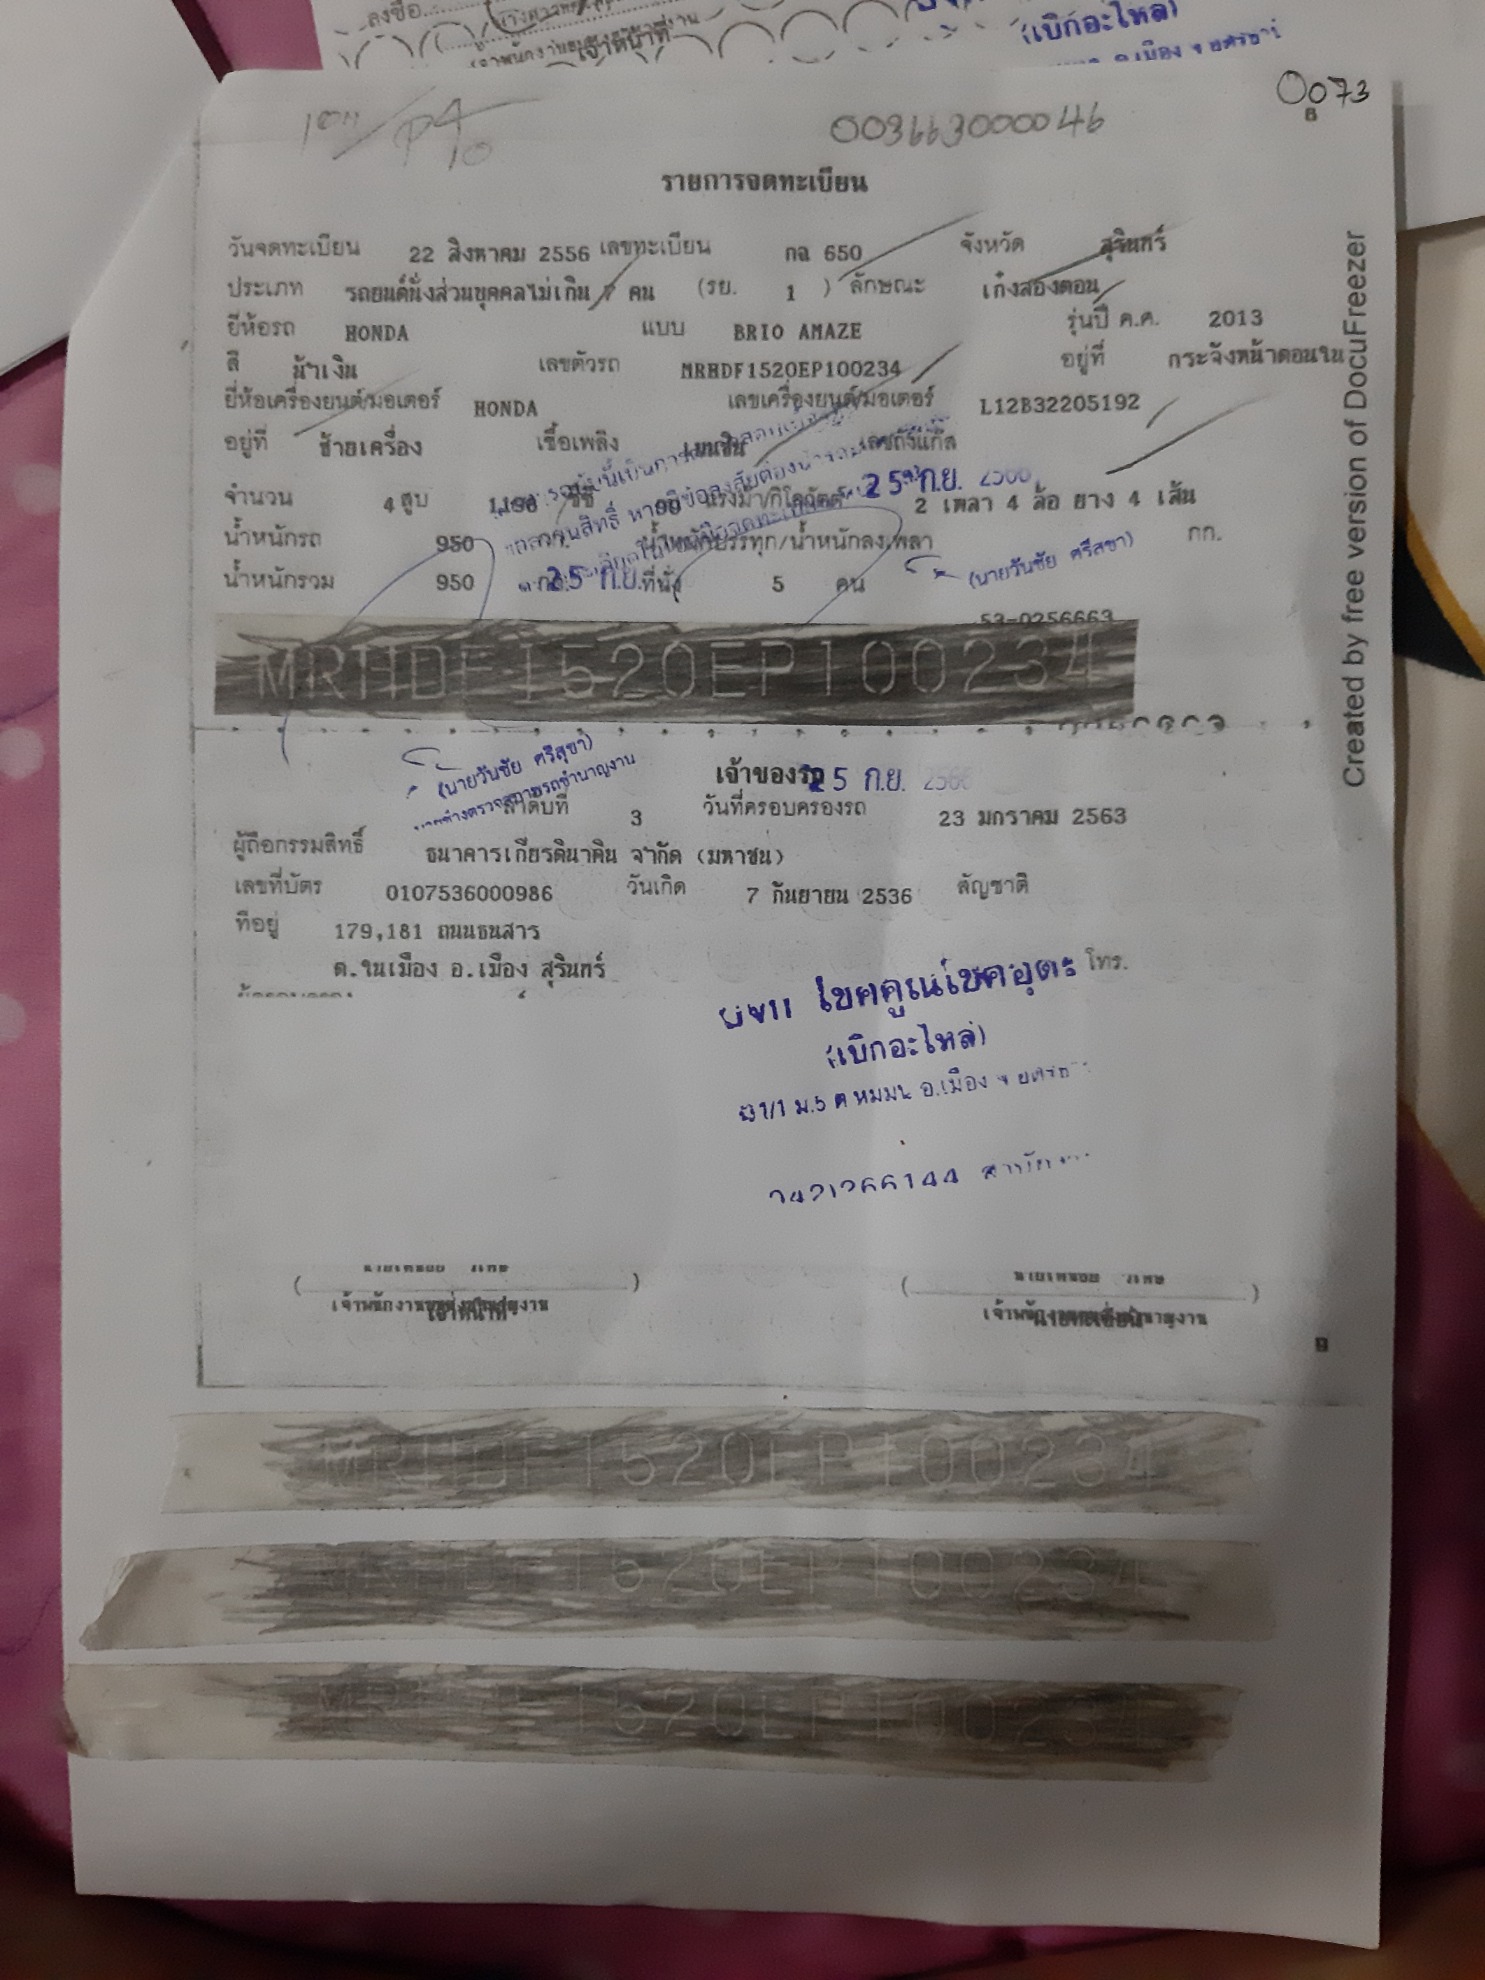 ลงชื่อ
เจ้าหน้าที่
(เบิกอะไหล่)
003663000046
073
รายการจดทะเบียน
วันจดทะเบียน 22 สิงหาคม 2556 เลขทะเบียน กฉ 650 จังหวัด สุรินทร์
ประเภท รถยนต์นั่งส่วนบุคคลไม่เกิน 7 คน (รย. 1 ) ลักษณะ เก๋งสองตอน
ยี่ห้อรถ HONDA แบบ BRIO AMAZE รุ่นปี ค.ศ. 2013
สี น้ำเงิน เลขตัวรถ MRHDF1520EP100234 อยู่ที่ กระจังหน้าตอนใน
ยี่ห้อเครื่องยนต์/มอเตอร์ HONDA เลขเครื่องยนต์/มอเตอร์ L12B32205192
อยู่ที่ ซ้ายเครื่อง เชื้อเพลิง เบนซิน เลขถังแก๊ส
25 ก.ย.
จำนวน 4 สูบ 1198 ซีซี 90 แรงม้า/กิโลวัตต์ 2 เพลา 4 ล้อ ยาง 4 เส้น
น้ำหนักรถ 950 น้ำหนักบรรทุก/น้ำหนักลงเพลา กก.
น้ำหนักรวม 950 กก. ที่นั่ง 5 คน
25 ก.ย.
(นายวันชัย ศรีสุขา)
53-0256663
MRHDF1520EP100234
(นายวันชัย ศรีสุขา)
นายช่างตรวจสภาพรถชำนาญงาน
เจ้าของรถ
25 ก.ย. 2566
ลำดับที่ 3 วันที่ครอบครองรถ 23 มกราคม 2563
ผู้ถือกรรมสิทธิ์ ธนาคารเกียรตินาคิน จำกัด (มหาชน)
เลขที่บัตร 0107536000986 วันเกิด 7 กันยายน 2536 สัญชาติ
ที่อยู่ 179,181 ถนนธนสาร
ต.ในเมือง อ.เมือง สุรินทร์
โทร.
โชคคูณโชคอุดะ
(เบิกอะไหล่)
ม.5 อ.เมือง
เจ้าพนักงานขนส่งชำนาญงาน
เจ้าหน้าที่
เจ้าพนักงานขนส่งชำนาญงาน
นายทะเบียน
MRHDF1520EP100234
MRHDF1520EP100234
MRHDF1520EP100234
Created by free version of DocuFreezer